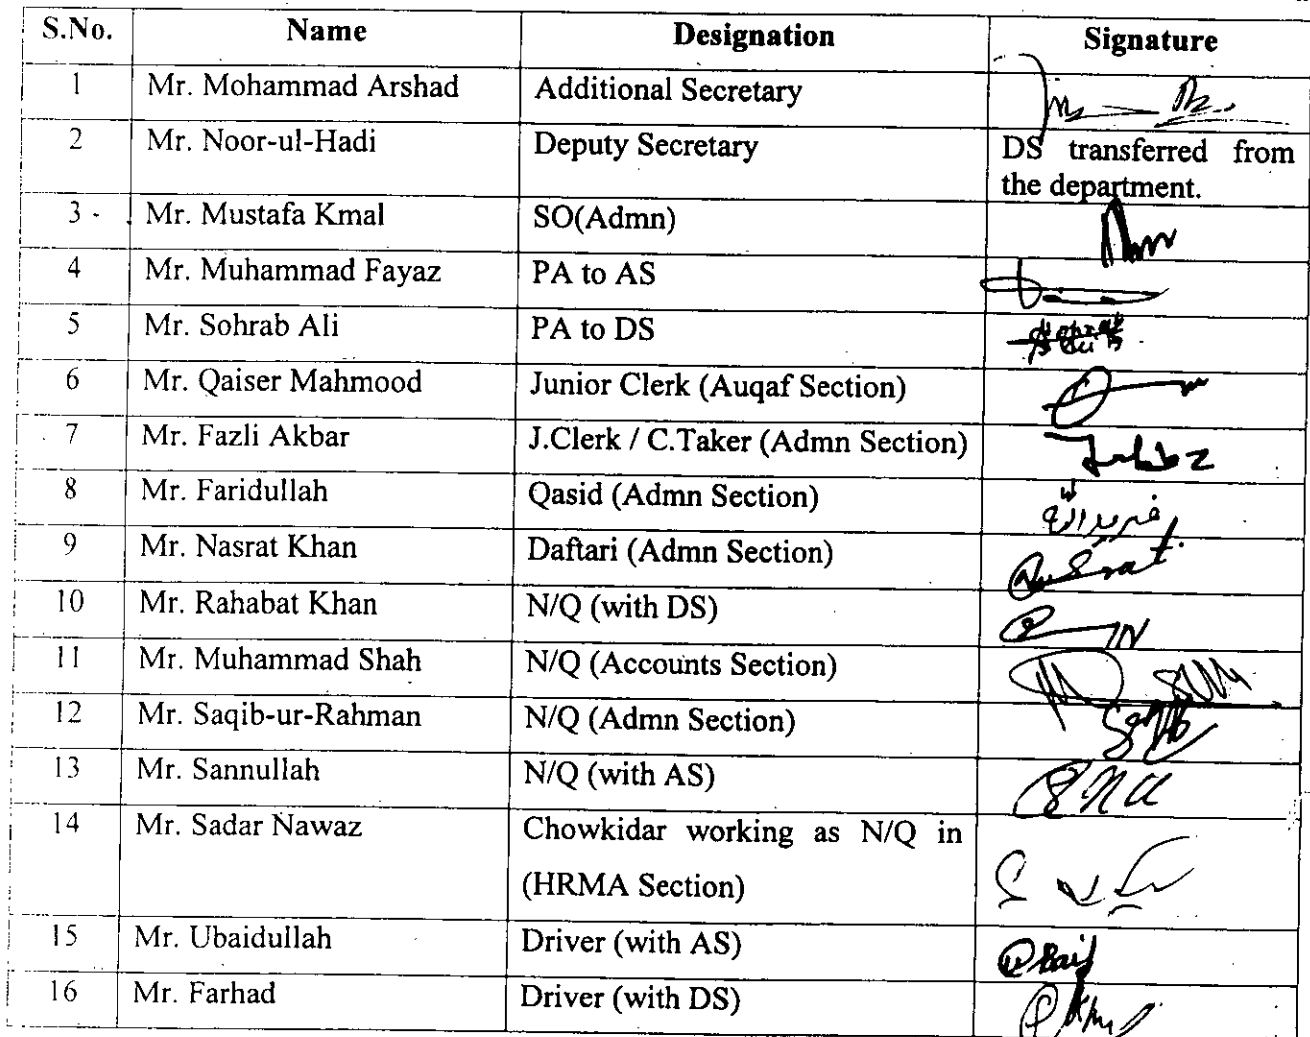 S.No. Name Designation Signature
1 Mr. Mohammad Arshad Additional Secretary
2 Mr. Noor-ul-Hadi Deputy Secretary DS transferred from
the department.
3 Mr. Mustafa Kmal SO(Admn)
4 Mr. Muhammad Fayaz PA to AS
5 Mr. Sohrab Ali PA to DS
6 Mr. Qaiser Mahmood Junior Clerk (Auqaf Section)
7 Mr. Fazli Akbar J.Clerk / C.Taker (Admn Section)
8 Mr. Faridullah Qasid (Admn Section) فریداللہ
9 Mr. Nasrat Khan Daftari (Admn Section) Nusrat
10 Mr. Rahabat Khan N/Q (with DS)
11 Mr. Muhammad Shah N/Q (Accounts Section)
12 Mr. Saqib-ur-Rahman N/Q (Admn Section)
13 Mr. Sannullah N/Q (with AS)
14 Mr. Sadar Nawaz Chowkidar working as N/Q in
(HRMA Section)
15 Mr. Ubaidullah Driver (with AS)
16 Mr. Farhad Driver (with DS)